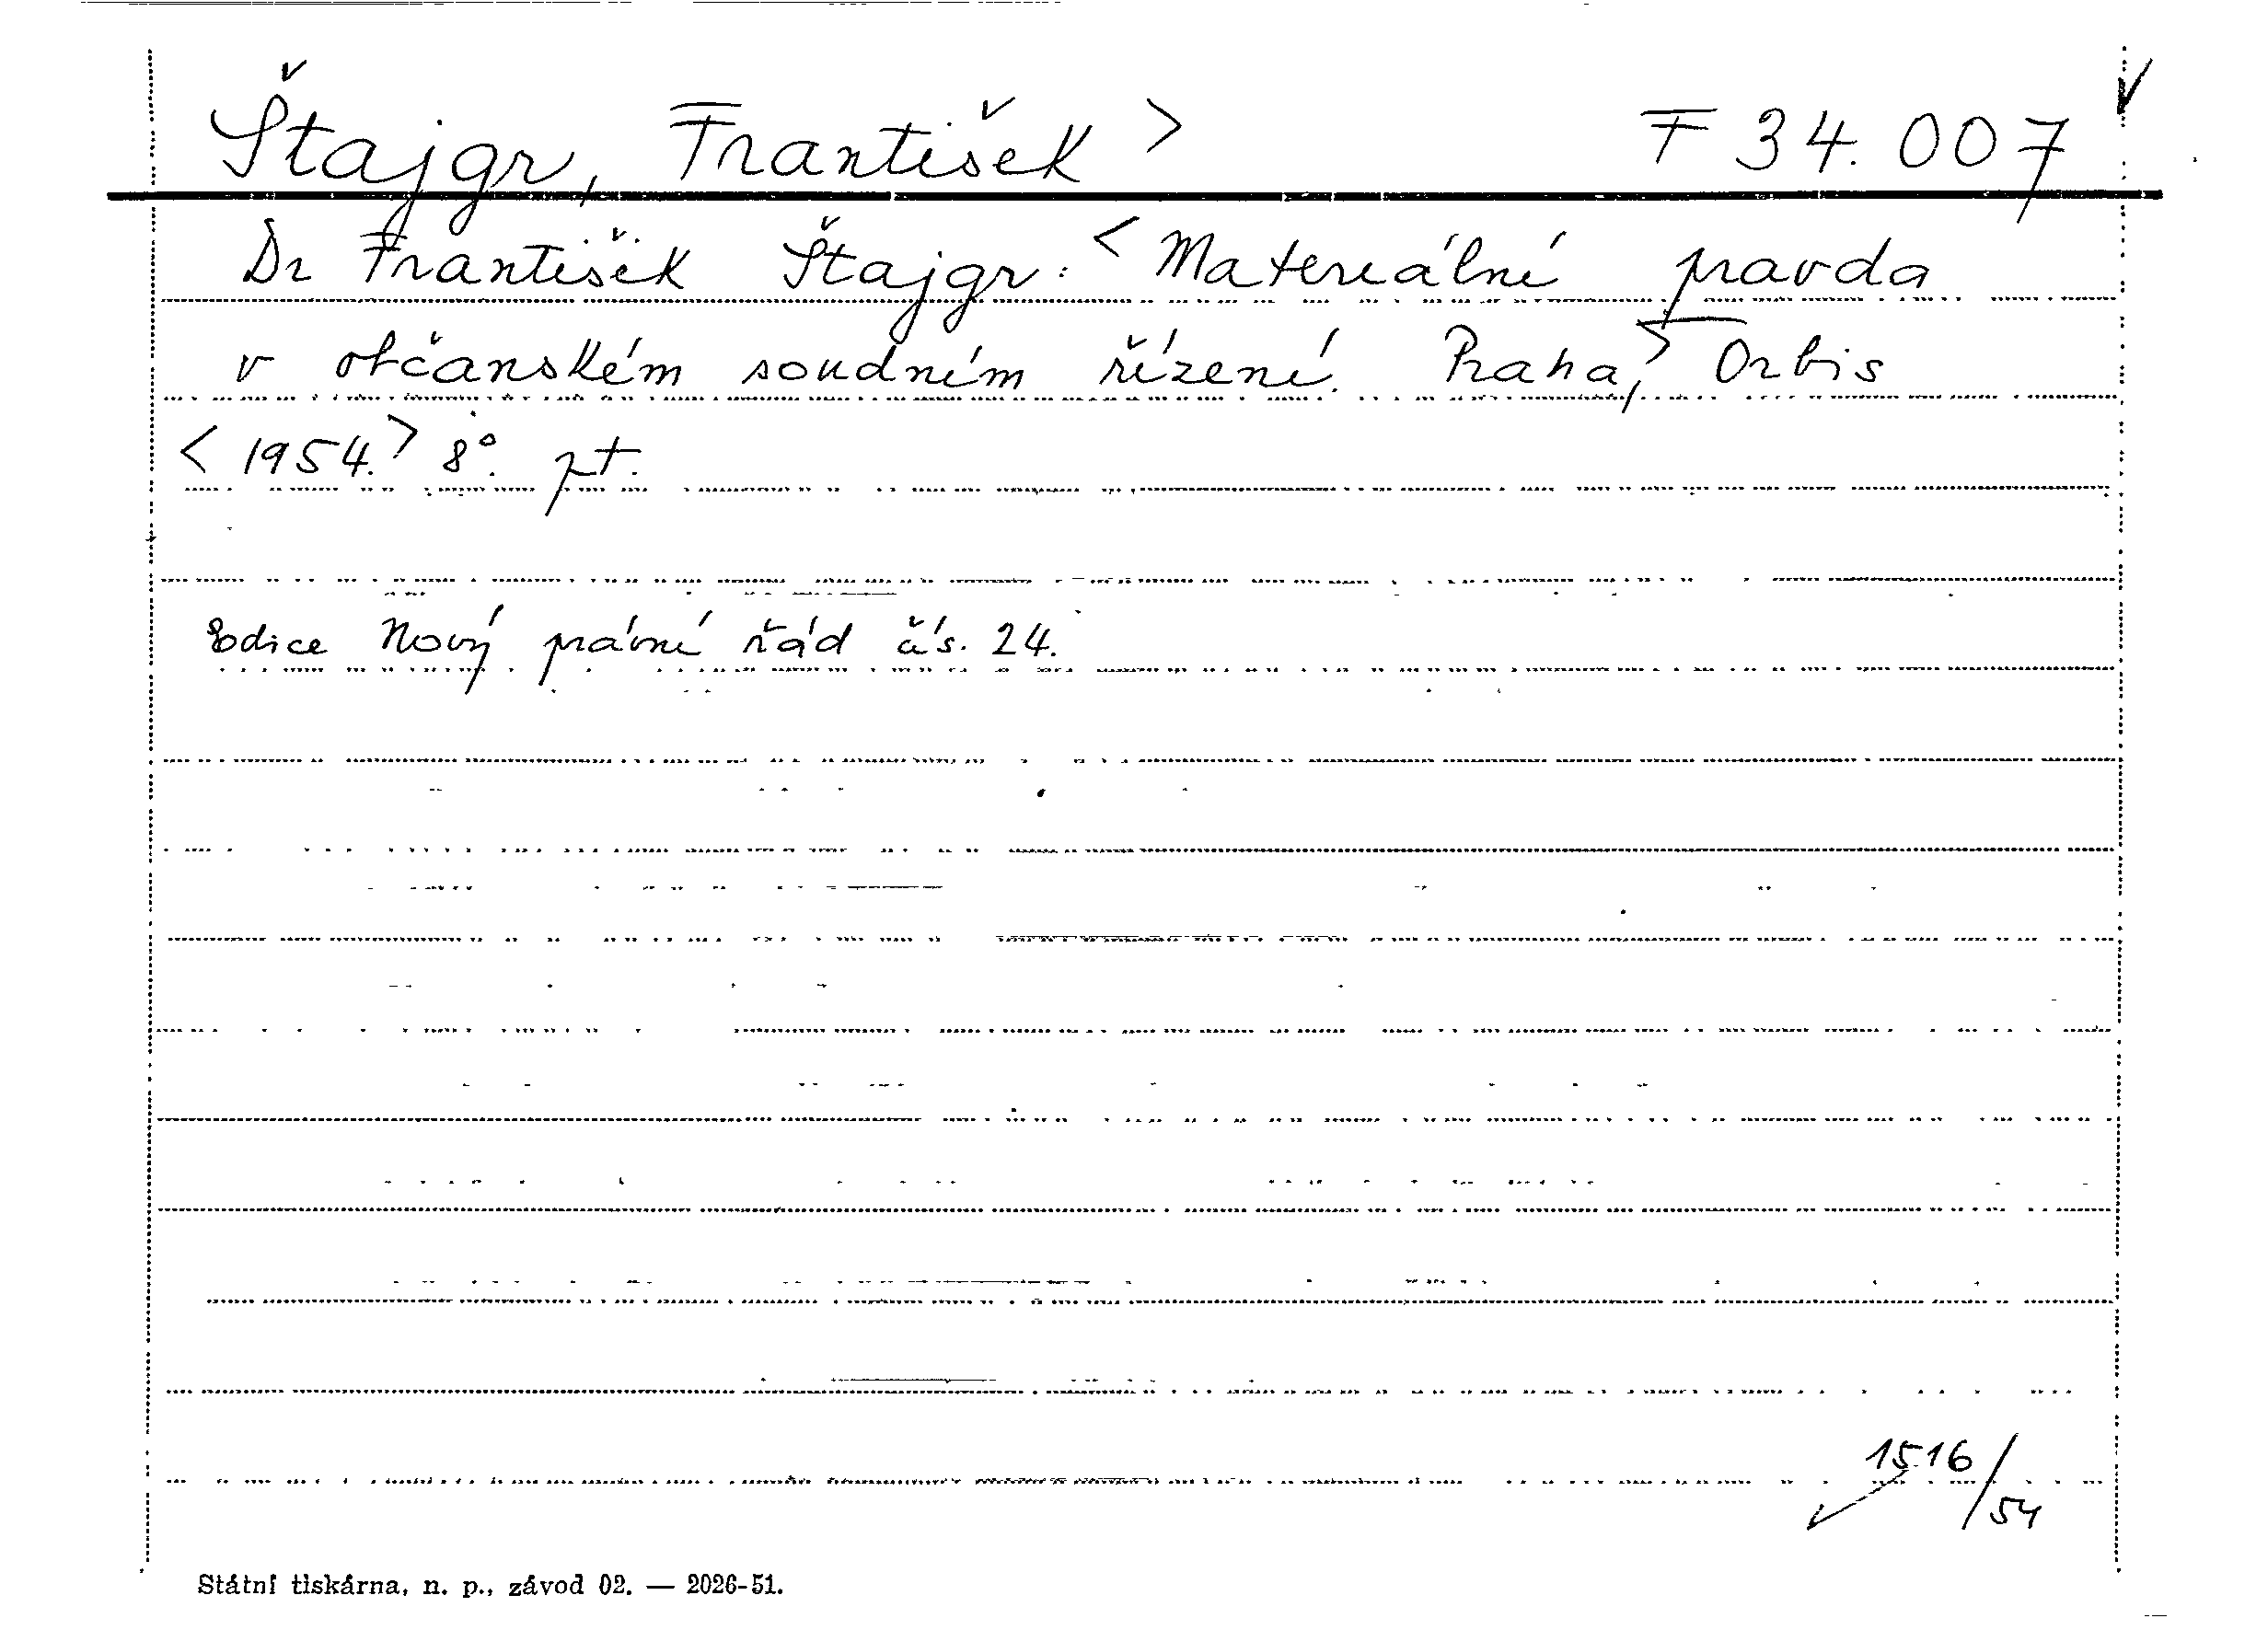 Štajgr, František > F 34.007
Dr František Štajgr: < Materiální pravda
v občanském soudním řízení. Praha, > Orbis
< 1954. > 8°. pt.
Edice Nový právní řád čís. 24.
1516/54
Státní tiskárna, n. p., závod 02. — 2026-51.